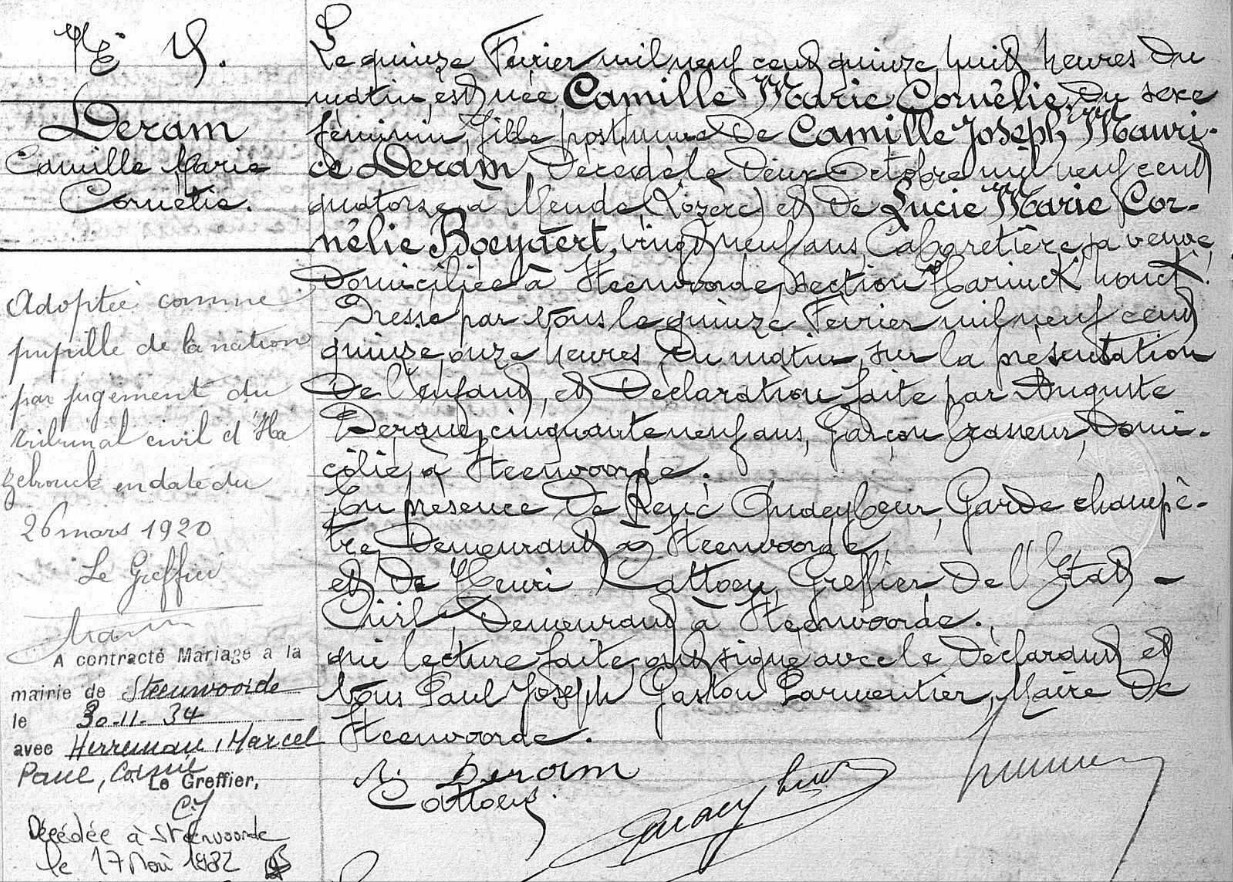 N° 15.
Deram
Camille Marie
Cornélie.
Adoptée comme
pupille de la nation
par jugement du
tribunal civil d'Ha
zebrouck en date du
26 mars 1920
Le Greffier
A contracté Mariage à la
mairie de Steenvoorde
le 30-11-34
avec Herreman, Marcel
Paul, Camille
Le Greffier,
Décédée à Steenvoorde
le 17 Mai 1982
Le quinze Février mil neuf cent quinze, huit heures du
matin, est née Camille Marie Cornélie, du sexe
féminin, fille postume de Camille Joseph Mauri-
ce Deram, décédé le deux Octobre mil neuf cent
quatorze à Mende (Lozère) et de Lucie Marie Cor-
nélie Boeydert, vingt neuf ans, Cabaretière, sa veuve,
domiciliée à Steenvoorde, section
Dressé par Nous le quinze Février mil neuf cent
quinze onze heures du matin, sur la présentation
de l'enfant, et déclaration faite par Auguste
cinquante neuf ans, Garçon brasseur, domi-
cilié à Steenvoorde.
En présence de René Garde champê-
tre, demeurant à Steenvoorde
et de Henri Cattoen, Greffier de l'Etat -
Civil demeurant à Steenvoorde.
qui lecture faite, ont signé avec le déclarant et
Nous Paul Joseph Gaston Parmentier, Maire de
Steenvoorde.
Deram
Cattoen